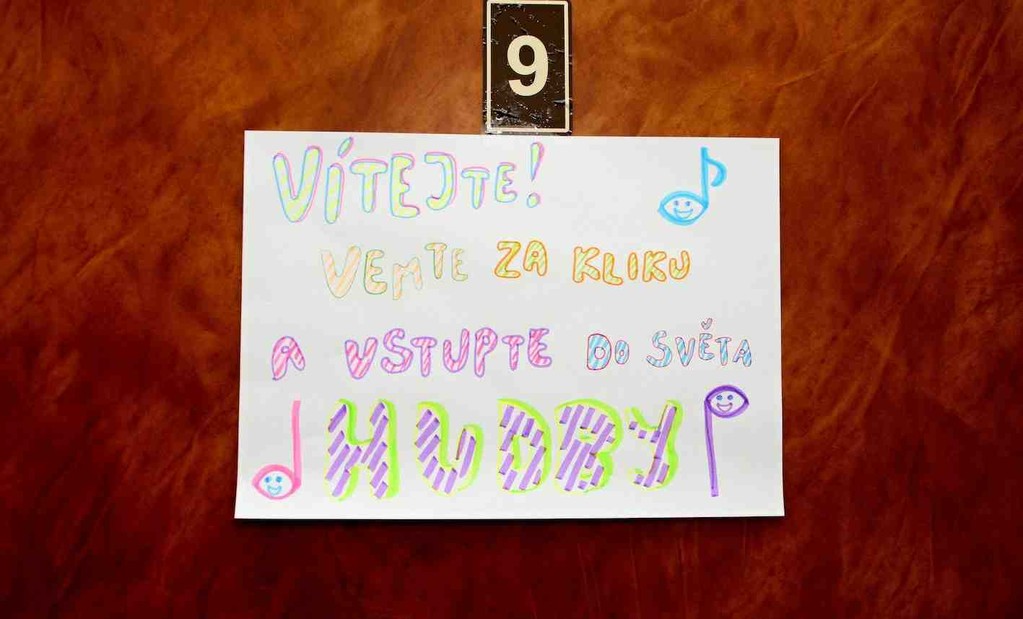 9
VÍTEJTE!
VEMTE ZA KLIKU
A VSTUPTE DO SVĚTA
HUDBY